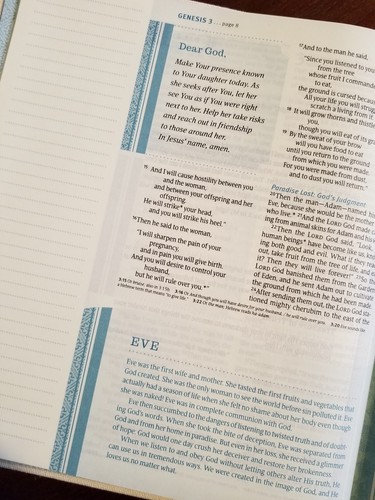 GENESIS 3 . . . page 8
Dear God,
Make Your presence known
to Your daughter today. As
she seeks after You, let her
see You as if You were right
next to her. Help her take risks
and reach out in friendship
to those around her.
In Jesus' name, amen.
15 And I will cause hostility between you
and the woman,
and between your offspring and her
offspring.
He will strike* your head,
and you will strike his heel."
16 Then he said to the woman,
"I will sharpen the pain of your
pregnancy,
and in pain you will give birth.
And you will desire to control your
husband,
but he will rule over you.*"
17 And to the man he said,
"Since you listened to you
from the tree
whose fruit I command
to eat,
the ground is cursed becau
All your life you will strug
scratch a living from it.
18 It will grow thorns and thistle
you,
though you will eat of its gra
19 By the sweat of your brow
will you have food to eat
until you return to the ground
from which you were mad
For you were made from dust,
and to dust you will return."
Paradise Lost: God's Judgment
20 Then the man—Adam—named his
Eve, because she would be the mother
who live.* 21 And the LORD God made c
ing from animal skins for Adam and his
22 Then the LORD God said, "Look,
human beings* have become like us, kno
ing both good and evil. What if they reac
out, take fruit from the tree of life, and ea
it? Then they will live forever!" 23 So th
LORD God banished them from the Garden
of Eden, and he sent Adam out to cultivate
the ground from which he had been made
24 After sending them out, the LORD God sta-
tioned mighty cherubim to the east of the
3:15 Or bruise; also in 3:15b. 3:16 Or And though you will have desire for your husband, / he will rule over you. 3:20 Eve sounds like
a Hebrew term that means "to give life." 3:22 Or the man; Hebrew reads ha-adam.
EVE
Eve was the first wife and mother. She tasted the first fruits and vegetables that
God created. She was the only woman to see the world before sin polluted it. Eve
actually had a season of life when she felt no shame about her body even though
she was naked! Eve was in complete communion with God.
Eve then succumbed to the dangers of listening to twisted truth and of doubt-
ing God's words. When she took the bite of deception, Eve was separated from
God and from her home in paradise. But even in her loss, she received a glimmer
of hope: God would one day crush her deceiver and restore her brokenness.
When we listen to and obey God without letting others alter His truth, He
can use us in tremendous ways. We were created in the image of God, and He
loves us no matter what.